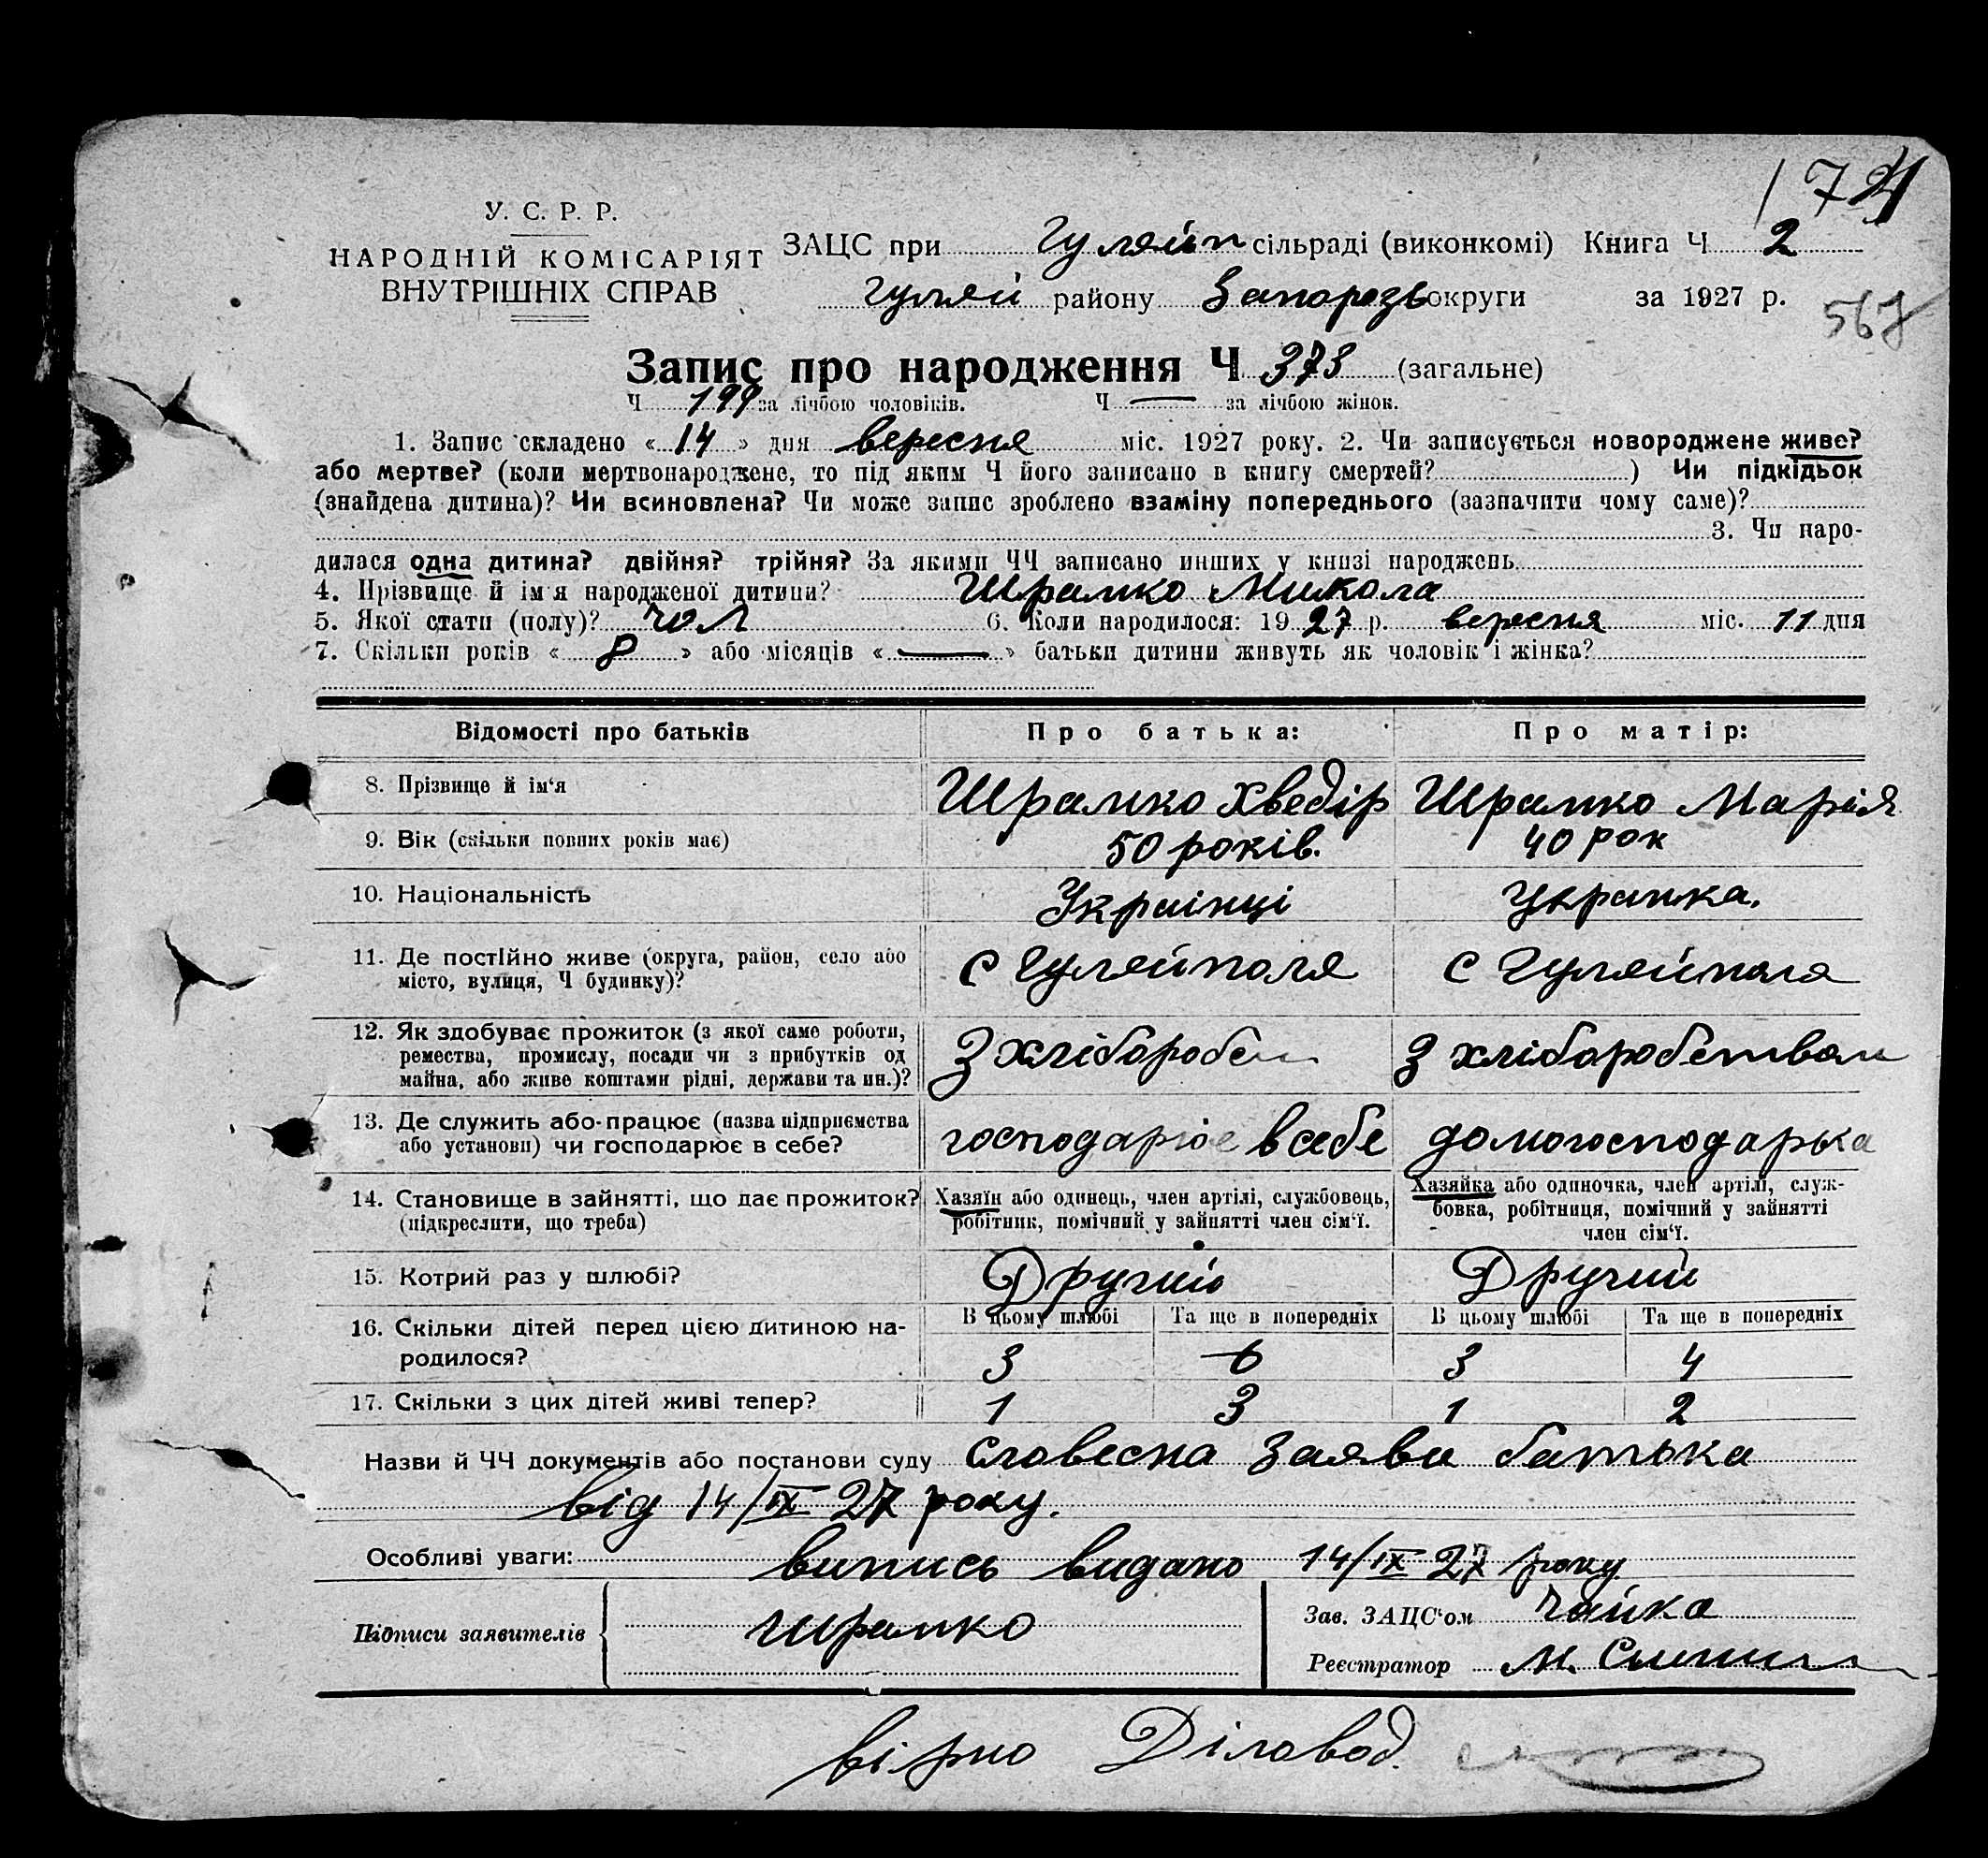 174
У. С. Р. Р.
НАРОДНІЙ КОМІСАРІЯТ
ВНУТРІШНІХ СПРАВ
ЗАЦС при Гуляйп сільраді (виконкомі) Книга Ч 2
Гуляй району Запорізь округи за 1927 р.
567
Запис про народження Ч 373 (загальне)
Ч 199 за лічбою чоловіків. Ч — за лічбою жінок.
1. Запис складено « 14 » дня вересня міс. 1927 року. 2. Чи записується новороджене живе?
або мертве? (коли мертвонароджене, то під яким Ч його записано в книгу смертей? ) Чи підкідьок
(знайдена дитина)? Чи всиновлена? Чи може запис зроблено взаміну попереднього (зазначити чому саме)?
3. Чи наро-
дилася одна дитина? двійня? трійня? За якими ЧЧ записано инших у книзі народжень
4. Прізвище й ім'я народженої дитини? Шрамко Микола
5. Якої стати (полу)? чол 6. Коли народилося: 1927 р. вересня міс. 11 дня
7. Скільки років « 8 » або місяців « — » батьки дитини живуть як чоловік і жінка?
Відомості про батьків Про батька: Про матір:
8. Прізвище й ім'я Шрамко Хведір Шрамко Марія
9. Вік (скільки повних років має) 50 років. 40 рок
10. Національність Украінці Украінка.
11. Де постійно живе (округа, район, село або
місто, вулиця, Ч будинку)? с Гуляйполя с Гуляйполя
12. Як здобуває прожиток (з якої саме роботи,
ремества, промислу, посади чи з прибутків од
майна, або живе коштами рідні, держави та ин.)? З хлібороб З хліборобством
13. Де служить або працює (назва підприємства
або установи) чи господарює в себе? господарює в себе домогосподарька
14. Становище в зайнятті, що дає прожиток?
(підкреслити, що треба)
Хазяїн або одинець, член артілі, службовець,
робітник, помічний у зайнятті член сім'ї.
Хазяйка або одиночка, член артілі, служ-
бовка, робітниця, помічний у зайнятті
член сім'ї.
15. Котрий раз у шлюбі? Другий Другий
16. Скільки дітей перед цією дитиною на-
родилося?
В цьому шлюбі Та ще в попередніх В цьому шлюбі Та ще в попередніх
3 6 3 4
17. Скільки з цих дітей живі тепер? 1 3 1 2
Назви й ЧЧ документів або постанови суду словесна заява батька
від 14/IX 27 року.
Особливі уваги: випись видано 14/IX 27 року
Підписи заявителів Шрамко
Зав. ЗАЦС'ом Чайка
Реєстратор М.
вірно Діловод.